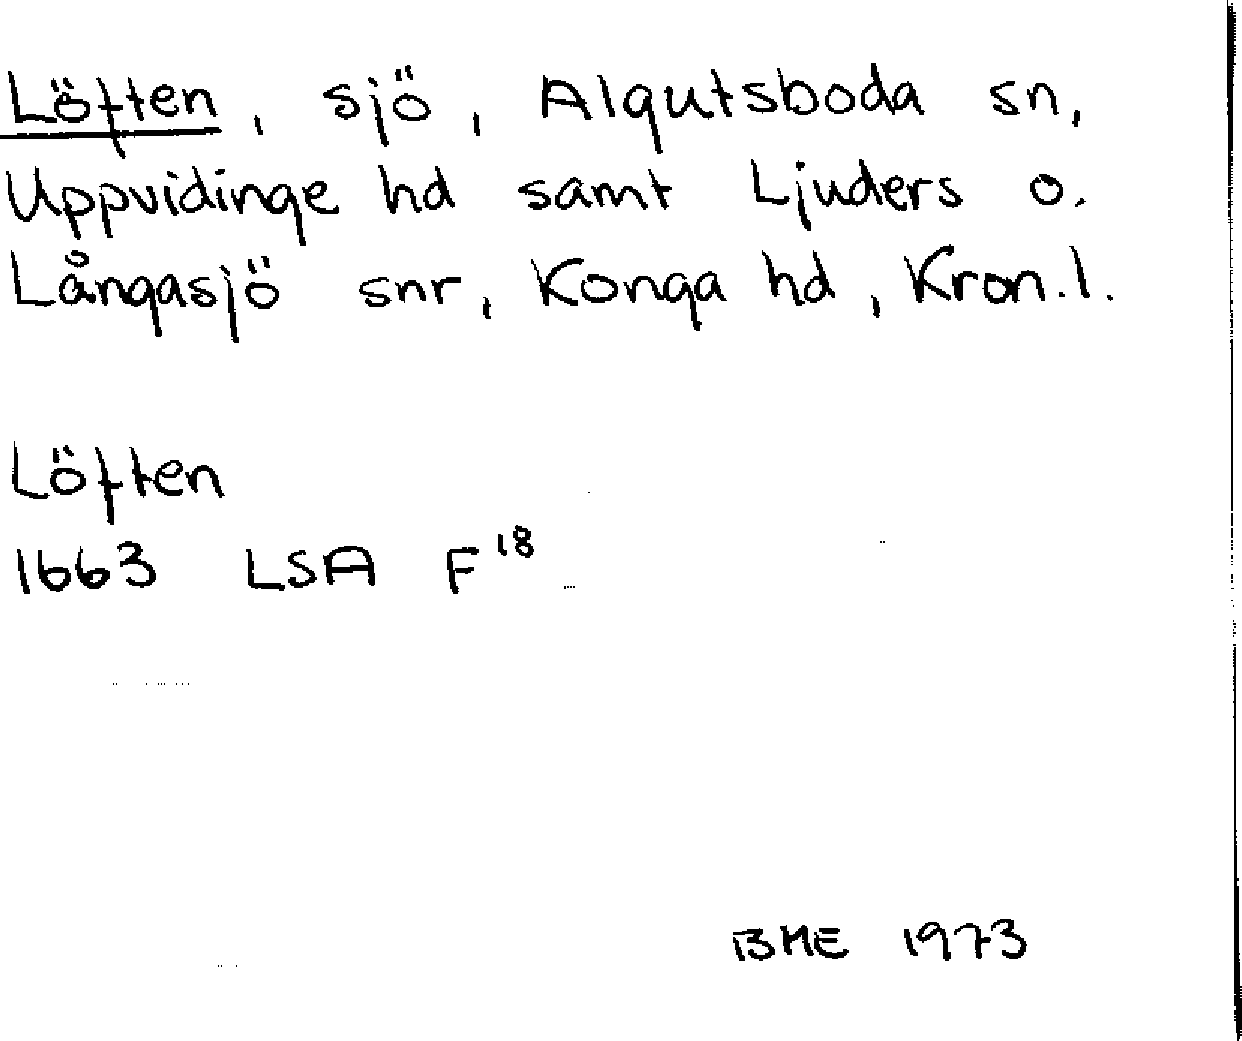 Löften, sjö, Algutsboda sn,
Uppvidinge hd samt Ljuders o.
Långasjö snr, Konga hd, Kron.l.
Löften
1663 LSA F¹⁸
BME 1973